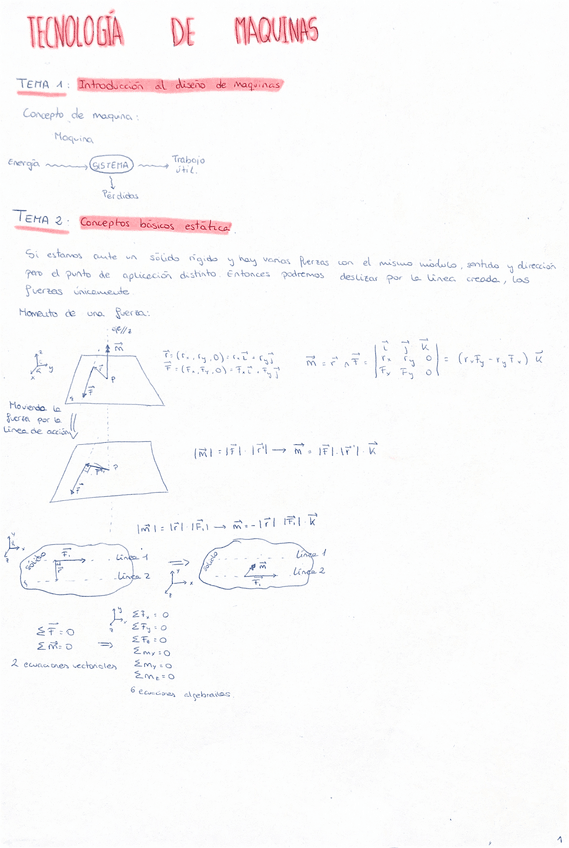 TECNOLOGÍA DE MAQUINAS
TEMA 1: Introducción al diseño de maquinas
Concepto de maquina:
Maquina
Energía → SISTEMA → Trabajo útil.
↓
Pérdidas
TEMA 2. Conceptos básicos estática.
Si estamos ante un sólido rígido y hay varias fuerzas con el mismo módulo, sentido y dirección
pero el punto de aplicación distinto. Entonces podremos deslizar por la línea creada, las
fuerzas únicamente.
Momento de una fuerza:
r⃗ = (rₓ, r_y, 0) = rₓ i⃗ + r_y j⃗
F⃗ = (Fₓ, F_y, 0) = Fₓ i⃗ + F_y j⃗
m⃗ = r⃗ ∧ F⃗ = | i⃗ j⃗ k⃗ ; rₓ r_y 0 ; Fₓ F_y 0 | = (rₓ F_y - r_y Fₓ) k⃗
Moviendo la
fuerza por la
línea de acción
|m⃗| = |F⃗| · |r⃗'| → m⃗ = |F⃗| · |r⃗'| · k⃗
|m⃗| = |r⃗| · |F⃗₁| → m⃗ = -|r⃗| |F⃗₁| · k⃗
sólido F⃗₁ Línea 1
r⃗ Línea 2
⇒
sólido Línea 1
m⃗ F⃗₁ Línea 2
Σ F⃗ = 0
Σ m⃗ = 0
2 ecuaciones vectoriales
⇒
Σ Fₓ = 0
Σ F_y = 0
Σ F_z = 0
Σ mₓ = 0
Σ m_y = 0
Σ m_z = 0
6 ecuaciones algebraicas.
1